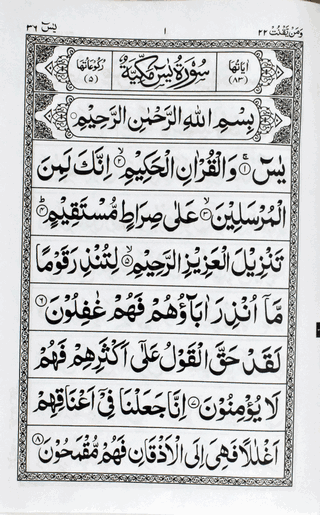 یٰسٓ ٣٦
١
وَمَنْ يَّقْنُتْ ٢٢
اٰيَاتُهَا (٨٣)
سُوْرَةُ يٰسٓ مَكِّيَّةٌ
رُكُوْعَاتُهَا (٥)
بِسْمِ اللّٰهِ الرَّحْمٰنِ الرَّحِيْمِ
يٰسٓ ۚ﴿١﴾ وَالْقُرْاٰنِ الْحَكِيْمِ ۙ﴿٢﴾ اِنَّكَ لَمِنَ
الْمُرْسَلِيْنَ ۙ﴿٣﴾ عَلٰى صِرَاطٍ مُّسْتَقِيْمٍ ؕ﴿٤﴾
تَنْزِيْلَ الْعَزِيْزِ الرَّحِيْمِ ۙ﴿٥﴾ لِتُنْذِرَ قَوْمًا
مَّاۤ اُنْذِرَ اٰبَآؤُهُمْ فَهُمْ غٰفِلُوْنَ ﴿٦﴾
لَقَدْ حَقَّ الْقَوْلُ عَلٰۤى اَكْثَرِهِمْ فَهُمْ
لَا يُؤْمِنُوْنَ ﴿٧﴾ اِنَّا جَعَلْنَا فِيْۤ اَعْنَاقِهِمْ
اَغْلٰلًا فَهِيَ اِلَى الْاَذْقَانِ فَهُمْ مُّقْمَحُوْنَ ﴿٨﴾